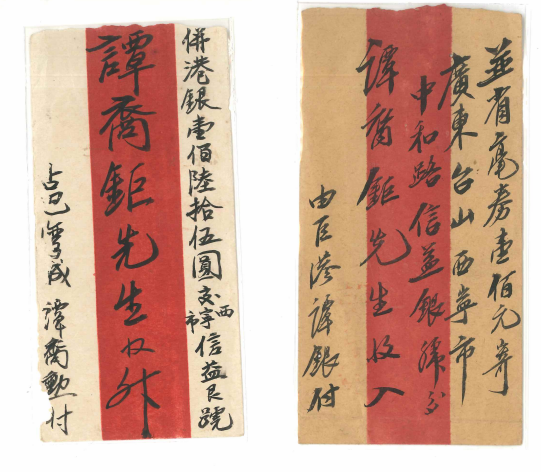 併港銀壹佰陸拾伍圓交西寧市信益良號
譚裔鉅先生收
占巳 成 譚裔勳付
並有毫劵壹佰元寄
廣東台山西寧市
中和路信益銀號交
譚裔鉅先生收入
由巨港譚銀付